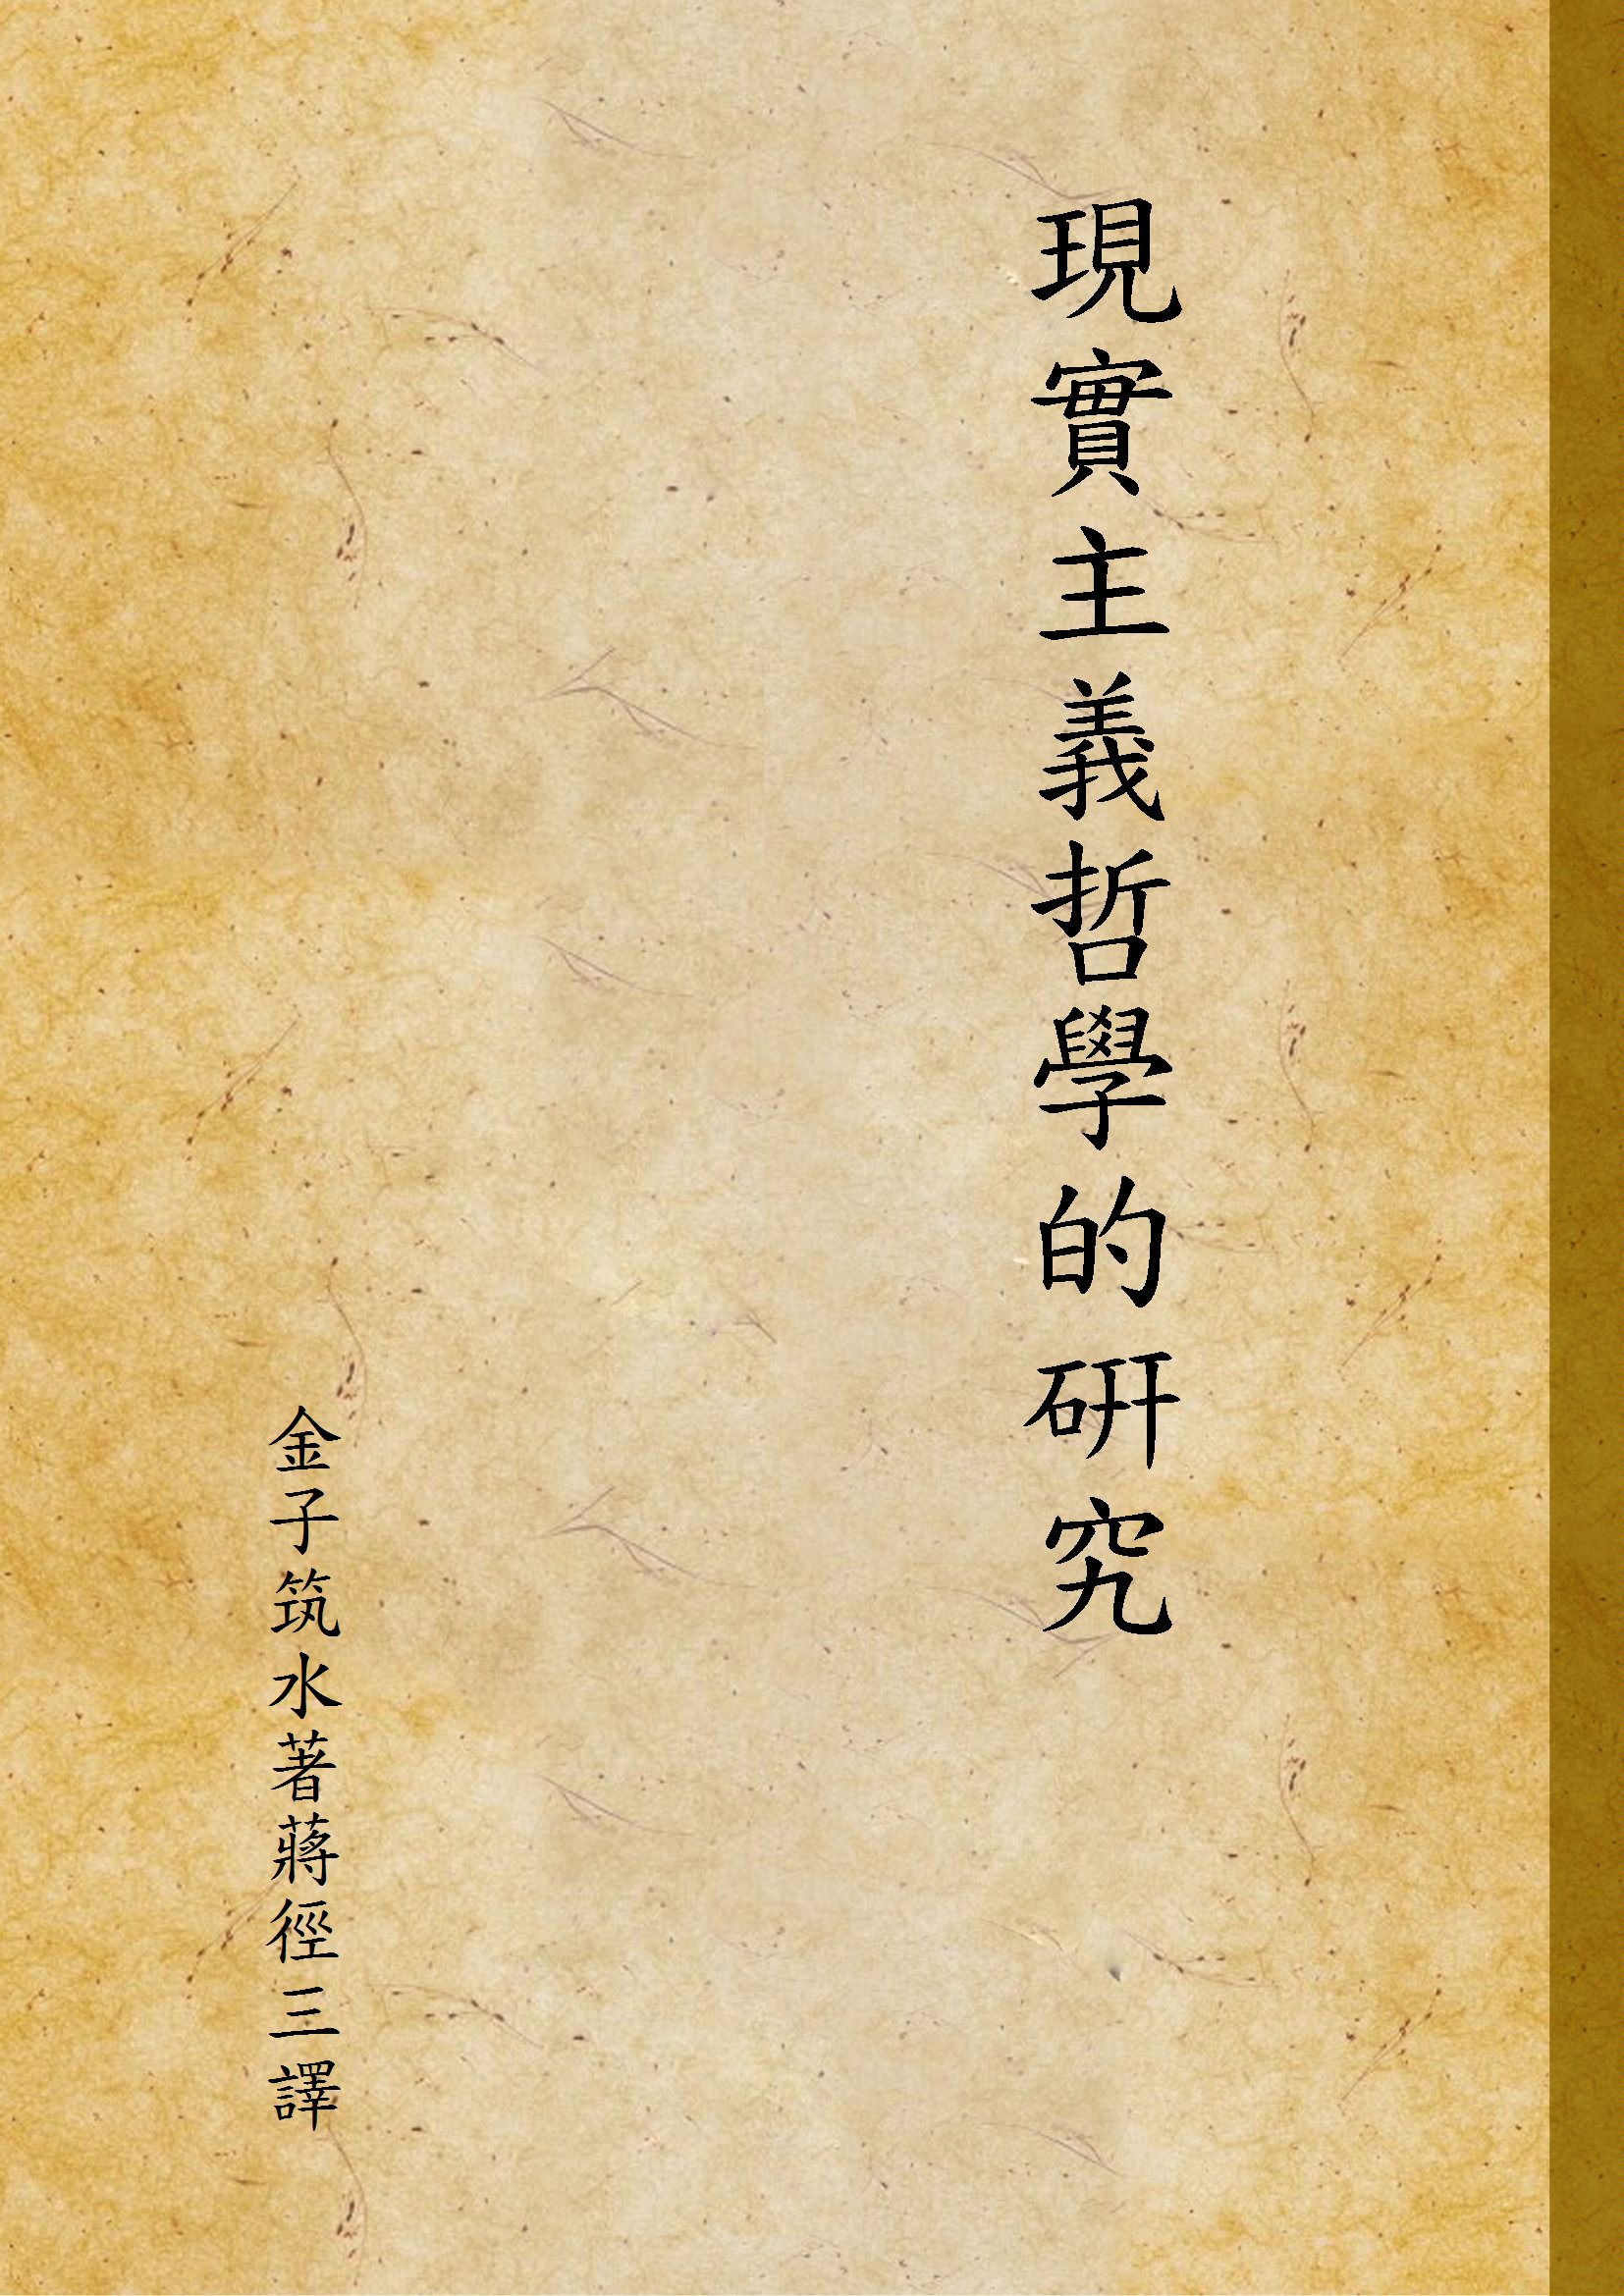 現實主義哲學的硏究
金子筑水著蔣徑三譯